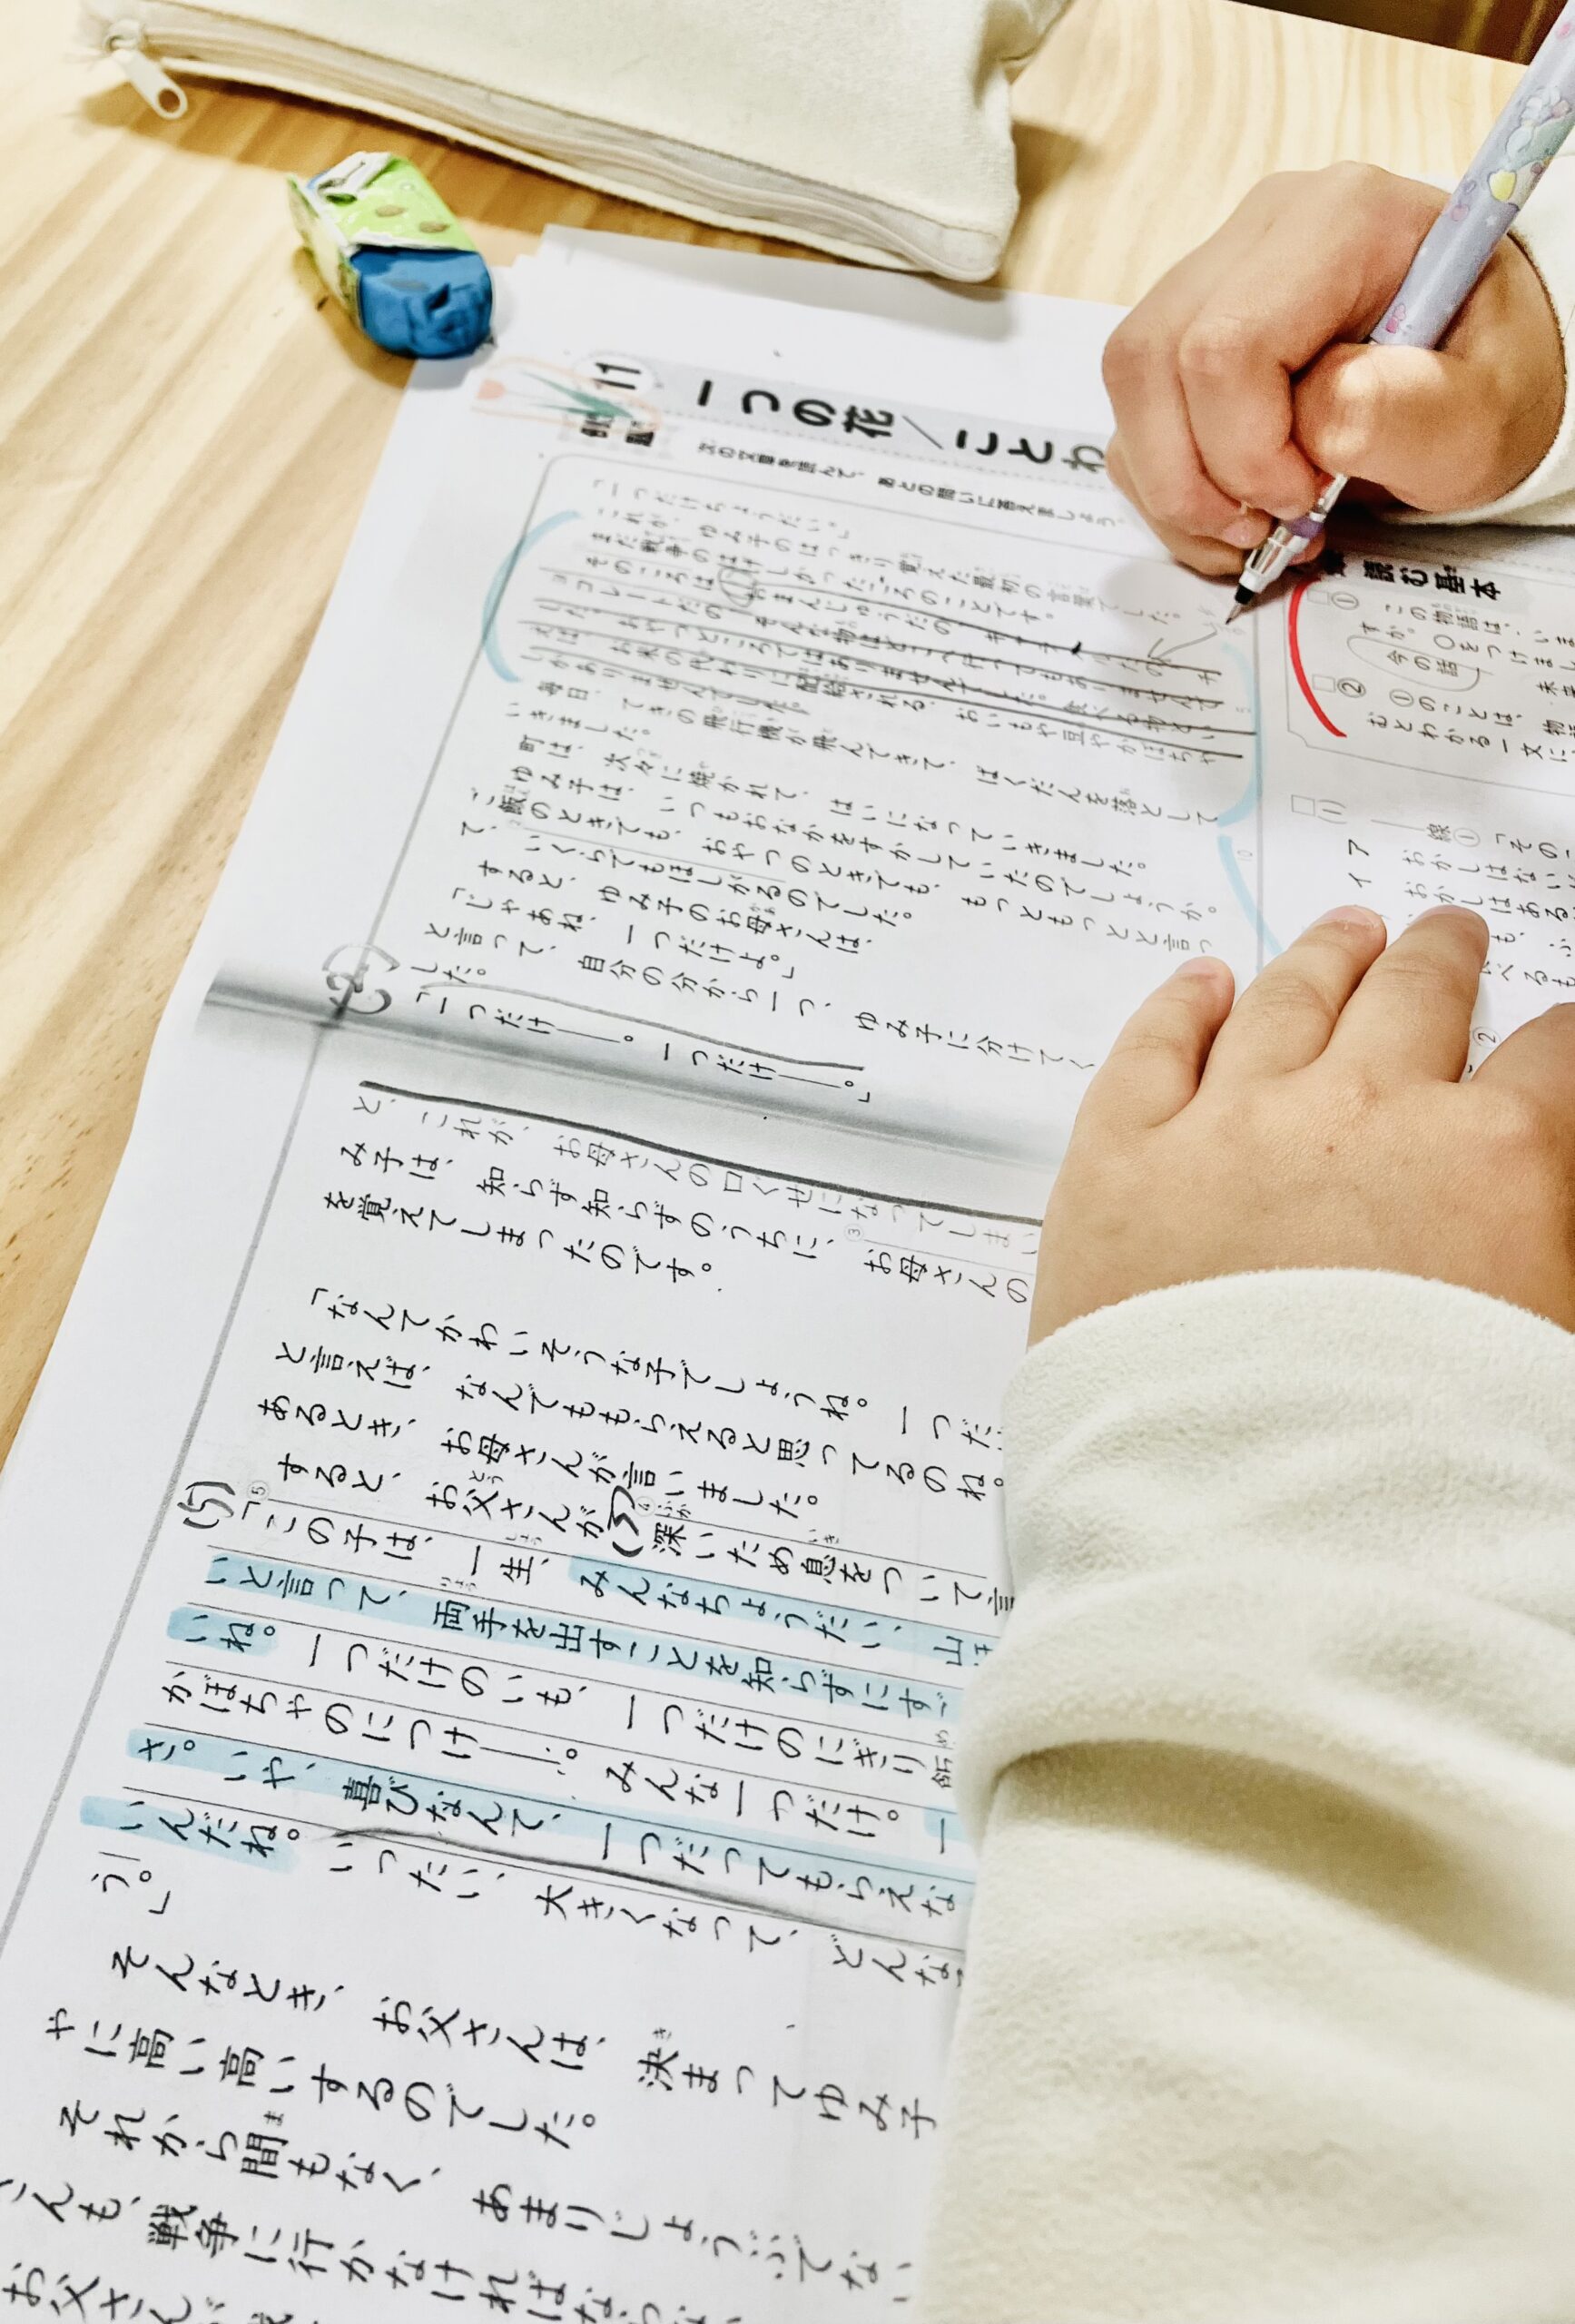 11
一つの花／
次の文章を読んで、あとの問いに答えましょう。
「一つだけちょうだい。」
これが、ゆみ子のはっきり覚えた最初の言葉でした。
まだ戦争のはげしかったころのことです。
そのころは、おまんじゅうだの、キャラメルだの、チ
ョコレートだの、そんな物はどこへ行ってもありませんで
した。おやつどころではありませんでした。食べる物とい
えば、お米の代わりに配給される、おいもや豆やかぼちゃ
しかありませんでした。
毎日、てきの飛行機が飛んできて、ばくだんを落として
いきました。
町は、次々に焼かれて、はいになっていきました。
ゆみ子は、いつもおなかをすかしていたのでしょうか。
ご飯のときでも、おやつのときでも、もっともっとと言っ
て、いくらでもほしがるのでした。
すると、ゆみ子のお母さんは、
「じゃあね、一つだけよ。」
と言って、自分の分から一つ、ゆみ子に分けてく
した。
「一つだけ――。一つだけ――。」
と、これが、お母さんの口ぐせになってしまい
み子は、知らず知らずのうちに、③お母さんの
を覚えてしまったのです。
「なんてかわいそうな子でしょうね。一つだ
と言えば、なんでももらえると思ってるのね。
あるとき、お母さんが言いました。
すると、お父さんが④深いため息をついて言
⑤「この子は、一生、みんなちょうだい、山ほ
いと言って、両手を出すことを知らずにすご
いね。一つだけのいも、一つだけのにぎり飯
かぼちゃのにつけ――。みんな一つだけ。一
さ。いや、喜びなんて、一つだってもらえな
いんだね。いったい、大きくなって、どんな
う。」
そんなとき、お父さんは、決まってゆみ子
やに高い高いするのでした。
それから間もなく、あまりじょうぶでない
さんも、戦争に行かなければならな
お父さんが
読む基本
① この物語は、いま
すか。○をつけまし
今の話
未来
② ①のことは、物
むとわかる一文に
線① 「そのこ
ア おかしはない
イ おかしはある
②